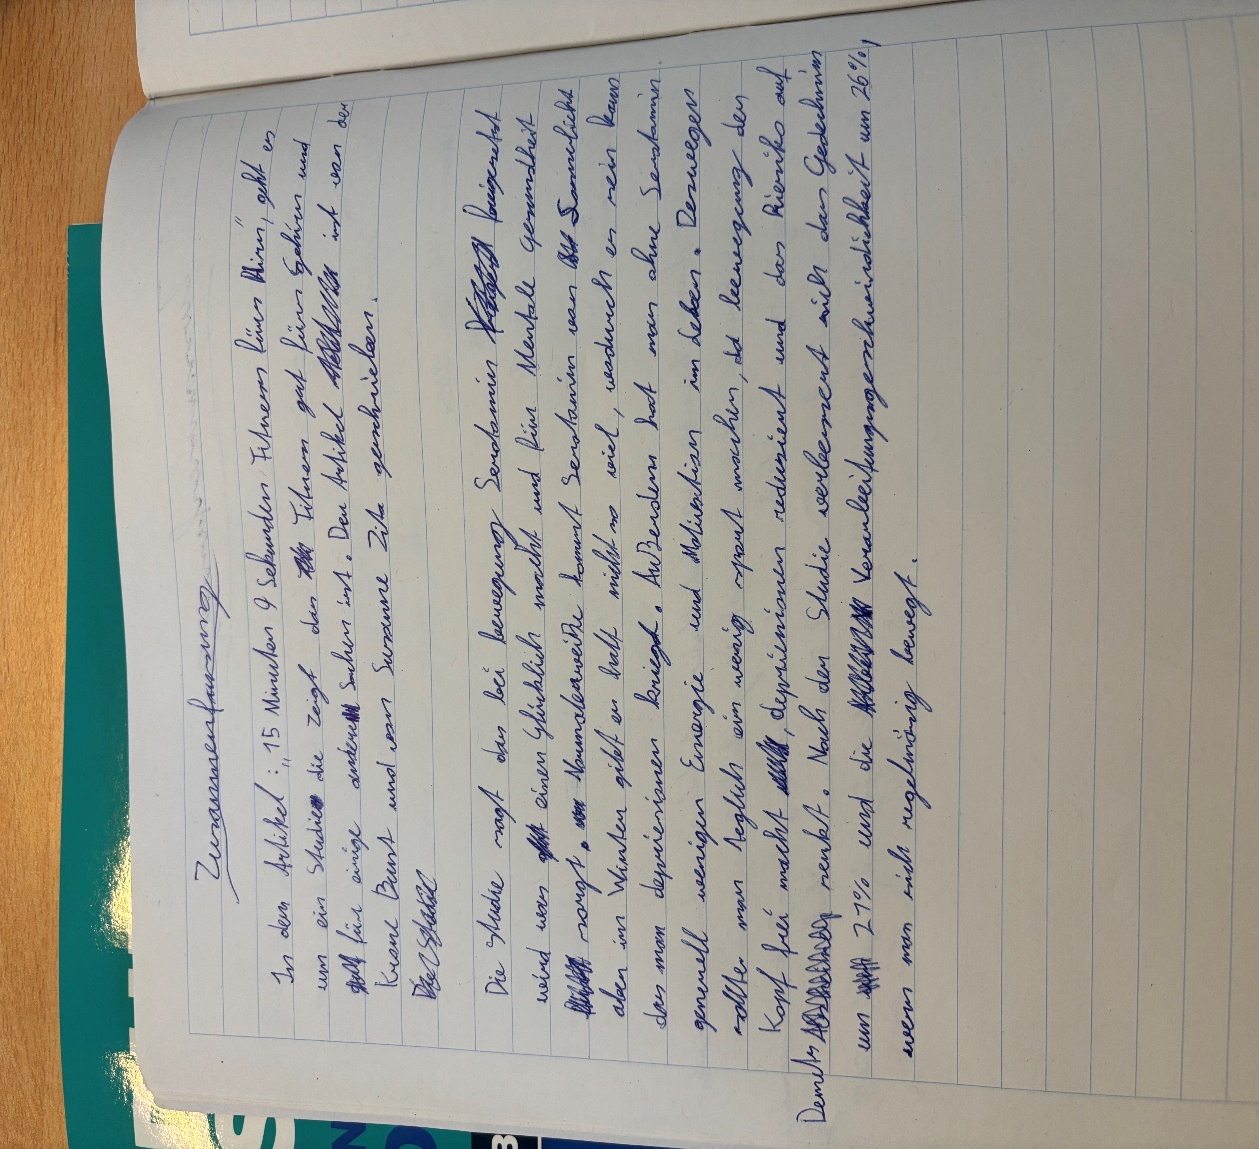 Zusammenfassung
In dem Artikel: „15 Minuten 9 Sekunden Fitness fürs Hirn", geht es
um ein Studie die zeigt das Fitness gut fürs Gehirn und
für einige andere Sachen ist. Der Artikel ist von der
Krone Bunt und von Susanne Zita geschrieben.
Die Studie sagt das bei bewegung Serotonin freigesetzt
wird was einen Glücklich macht und für Mentale gesundheit
sorgt. Normalerweiße kommt Serotonin von Sonnlicht
aber im Winter gibt es halt nicht so viel, wodurch es sein kann
das man depresionen kriegt. Außerdem hat man ohne Serotonin
generell weniger Energie und Motivation im Leben. Deswegen
sollte man täglich ein wenig sport machen, da bewegung den
Kopf frei macht, depresionen reduziert und das Risiko auf
Demetz senkt. Nach der Studie verbessert sich das Gedächnis
um 21% und die Verarbeitungsgeschwindichkeit um 26%,
wenn man sich regelmäsig bewegt.